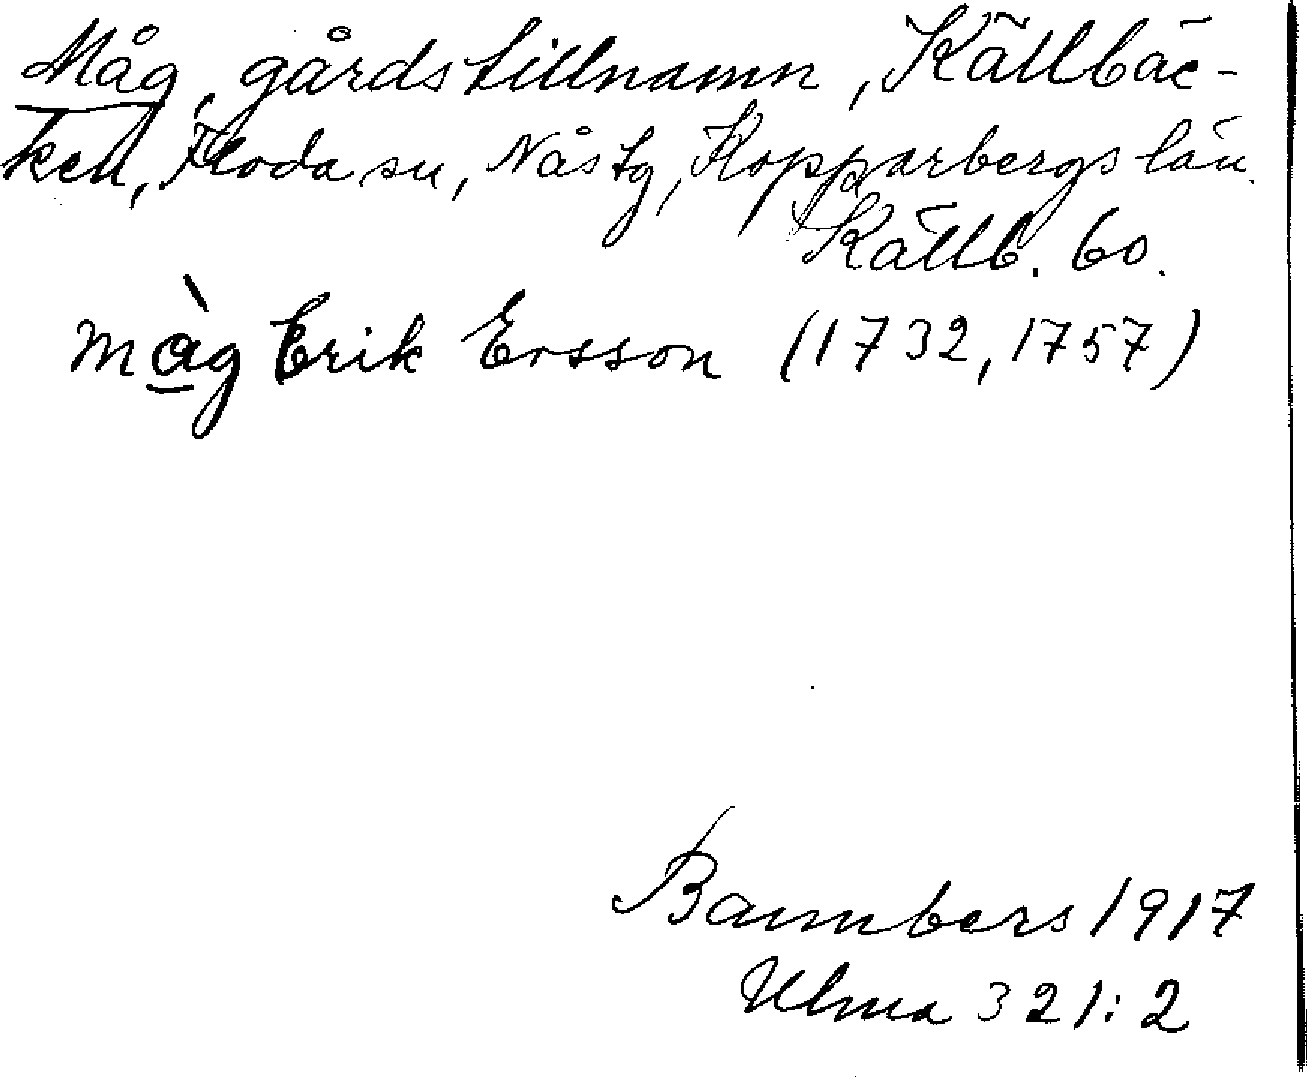 Måg, gårdstillnamn, Källbäc-
ken, Floda sn, Nås tg, Kopparbergs län.
Källb. 60.
màg Erik Ersson (1732, 1757)
1917
Ulma 321:2